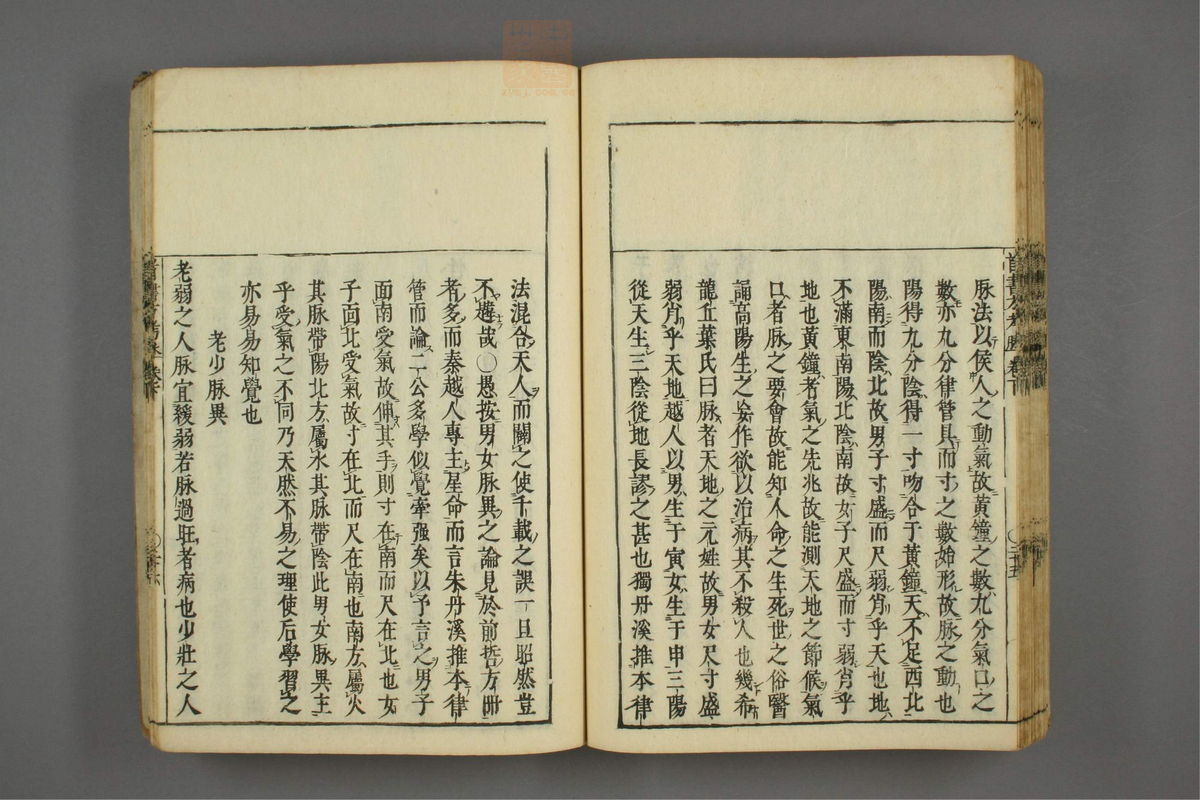 脉法以候人之動氣故黃鐘之數九分氣口之
數亦九分律管具而寸之數始形故脉之動也
陽得九分陰得一寸吻合于黃鐘天不足西北
陽南而陰北故男子寸盛而尺弱肖乎天也地
不滿東南陽北陰南故女子尺盛而寸弱肖乎
地也黃鐘者氣之先兆故能測天地之節候氣
口者脉之要會故能知人命之生死世之俗醫
誦高陽生之妄作欲以治病其不殺人也幾希
龍丘葉氏曰脉者天地之元姓故男女尺寸盛
弱肖乎天地越人以男生于寅女生于申三陽
從天生三陰從地長謬之甚也獨丹溪推本律
法混合天人而闢之使千載之誤一旦昭然豈
不韙哉○愚按男女脉異之論見於前哲方冊
者多而秦越人專主星命而言朱丹溪推本律
管而論二公多學似覺牽强矣以予言之男子
面南受氣故伸其手則寸在南而尺在北也女
子面北受氣故寸在北而尺在南也南方屬火
其脉帶陽北方屬水其脉帶陰此男女脉異主
乎受氣之不同乃天然不易之理使后學習之
亦易易知覺也
老少脉異
老弱之人脉宜緩弱若脉過旺者病也少壯之人